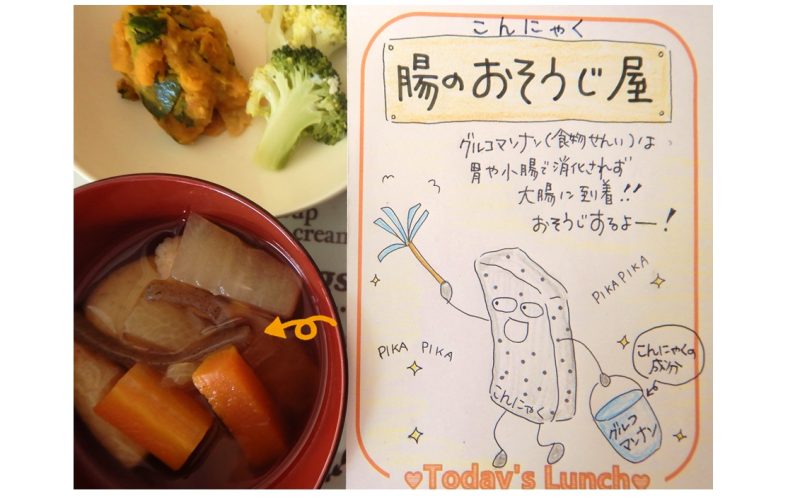 こんにゃく
腸のおそうじ屋
グルコマンナン(食物せんい)は
胃や小腸で消化されず
大腸に到着!!
おそうじするよー!
PIKA PIKA
PIKA PIKA
こんにゃくの
成分
こんにゃく
グルコ
マンナン
Today's Lunch
cream